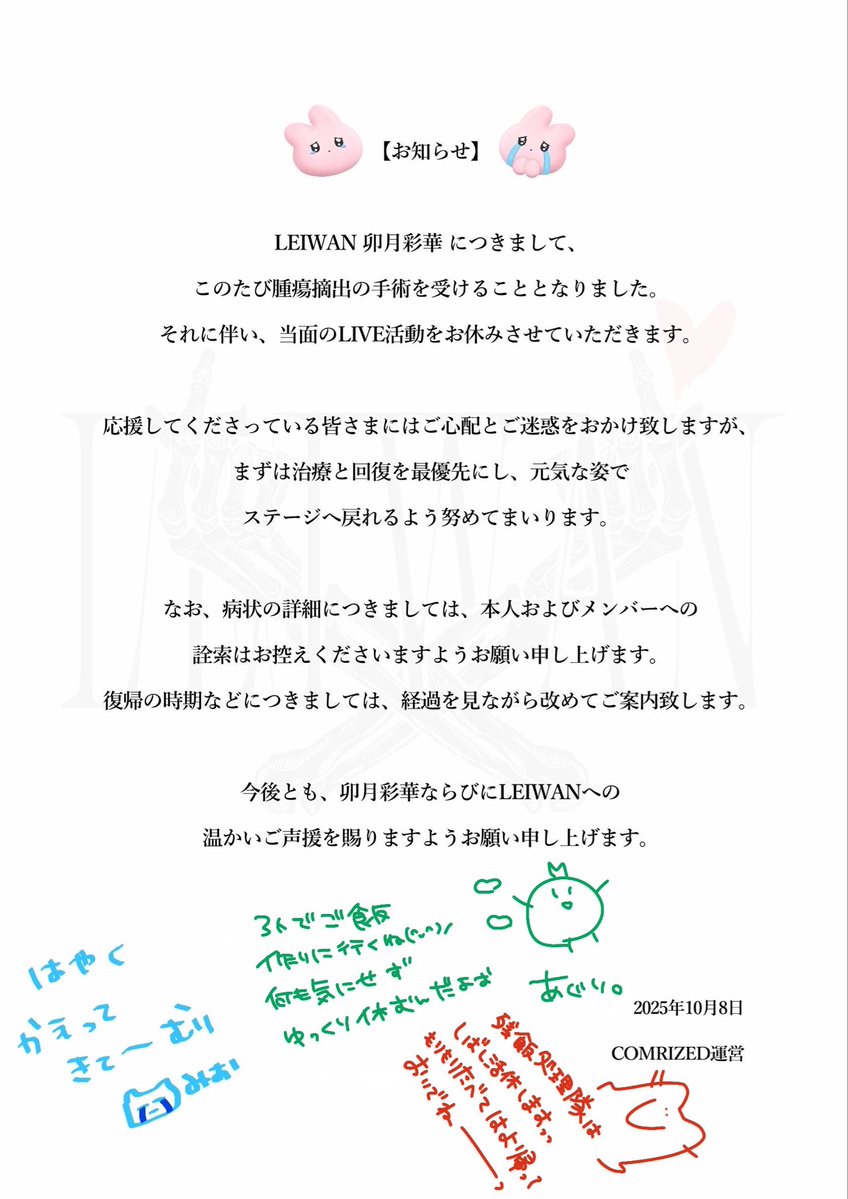 【お知らせ】
LEIWAN 卯月彩華 につきまして、
このたび腫瘍摘出の手術を受けることとなりました。
それに伴い、当面のLIVE活動をお休みさせていただきます。
応援してくださっている皆さまにはご心配とご迷惑をおかけ致しますが、
まずは治療と回復を最優先にし、元気な姿で
ステージへ戻れるよう努めてまいります。
なお、病状の詳細につきましては、本人およびメンバーへの
詮索はお控えくださいますようお願い申し上げます。
復帰の時期などにつきましては、経過を見ながら改めてご案内致します。
今後とも、卯月彩華ならびにLEIWANへの
温かいご声援を賜りますようお願い申し上げます。
3人でご飯
作りに行くね(^_^)ﾉ
何も気にせず
ゆっくり休むんだよお
あぐり。
はやく
かえって
きて〜むり
みお
残飯処理隊は
しばし活休します
もりもりたべてはよ帰って
おいでねーっ
2025年10月8日
COMRIZED運営
LEIWAN